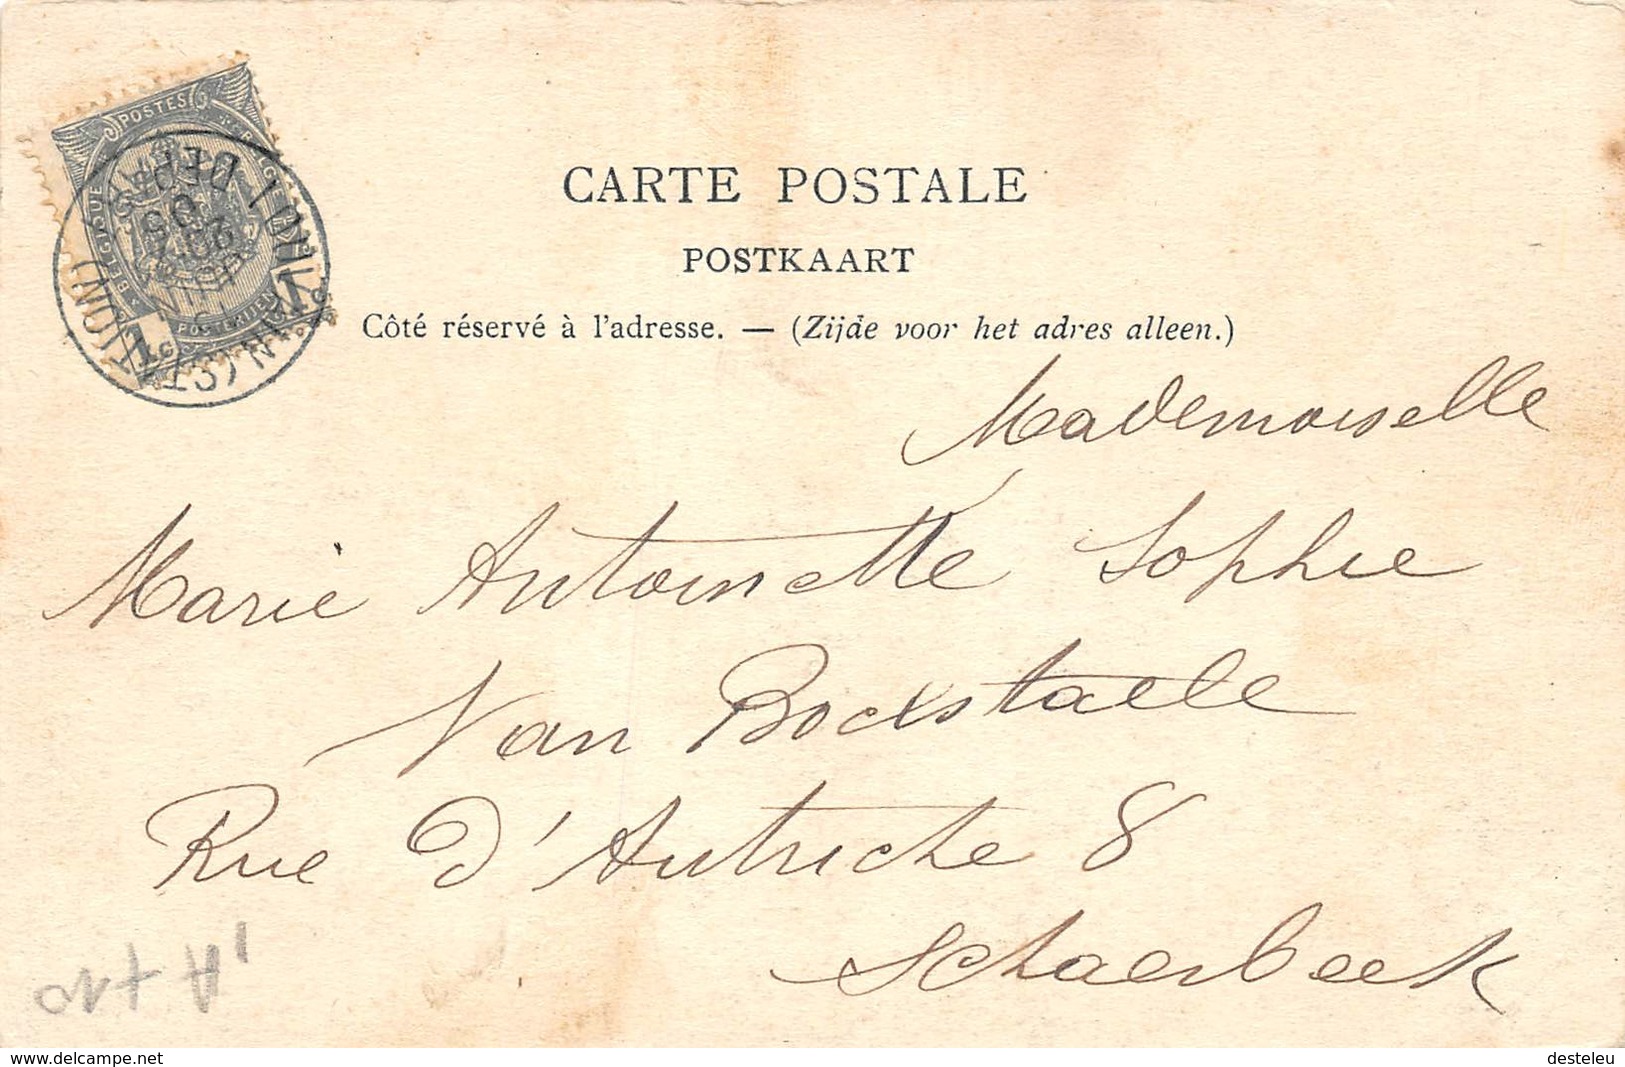 POSTES
BELGIQUE
POSTERIJEN
1c
1
DEPART
BRUXELLES
CARTE POSTALE
POSTKAART
Côté réservé à l'adresse. — (Zijde voor het adres alleen.)
Mademoiselle
Marie Antoinette Sophie
Van Bockstaele
Rue d'Autriche 8
Schaerbeek
www.delcampe.net
desteleu